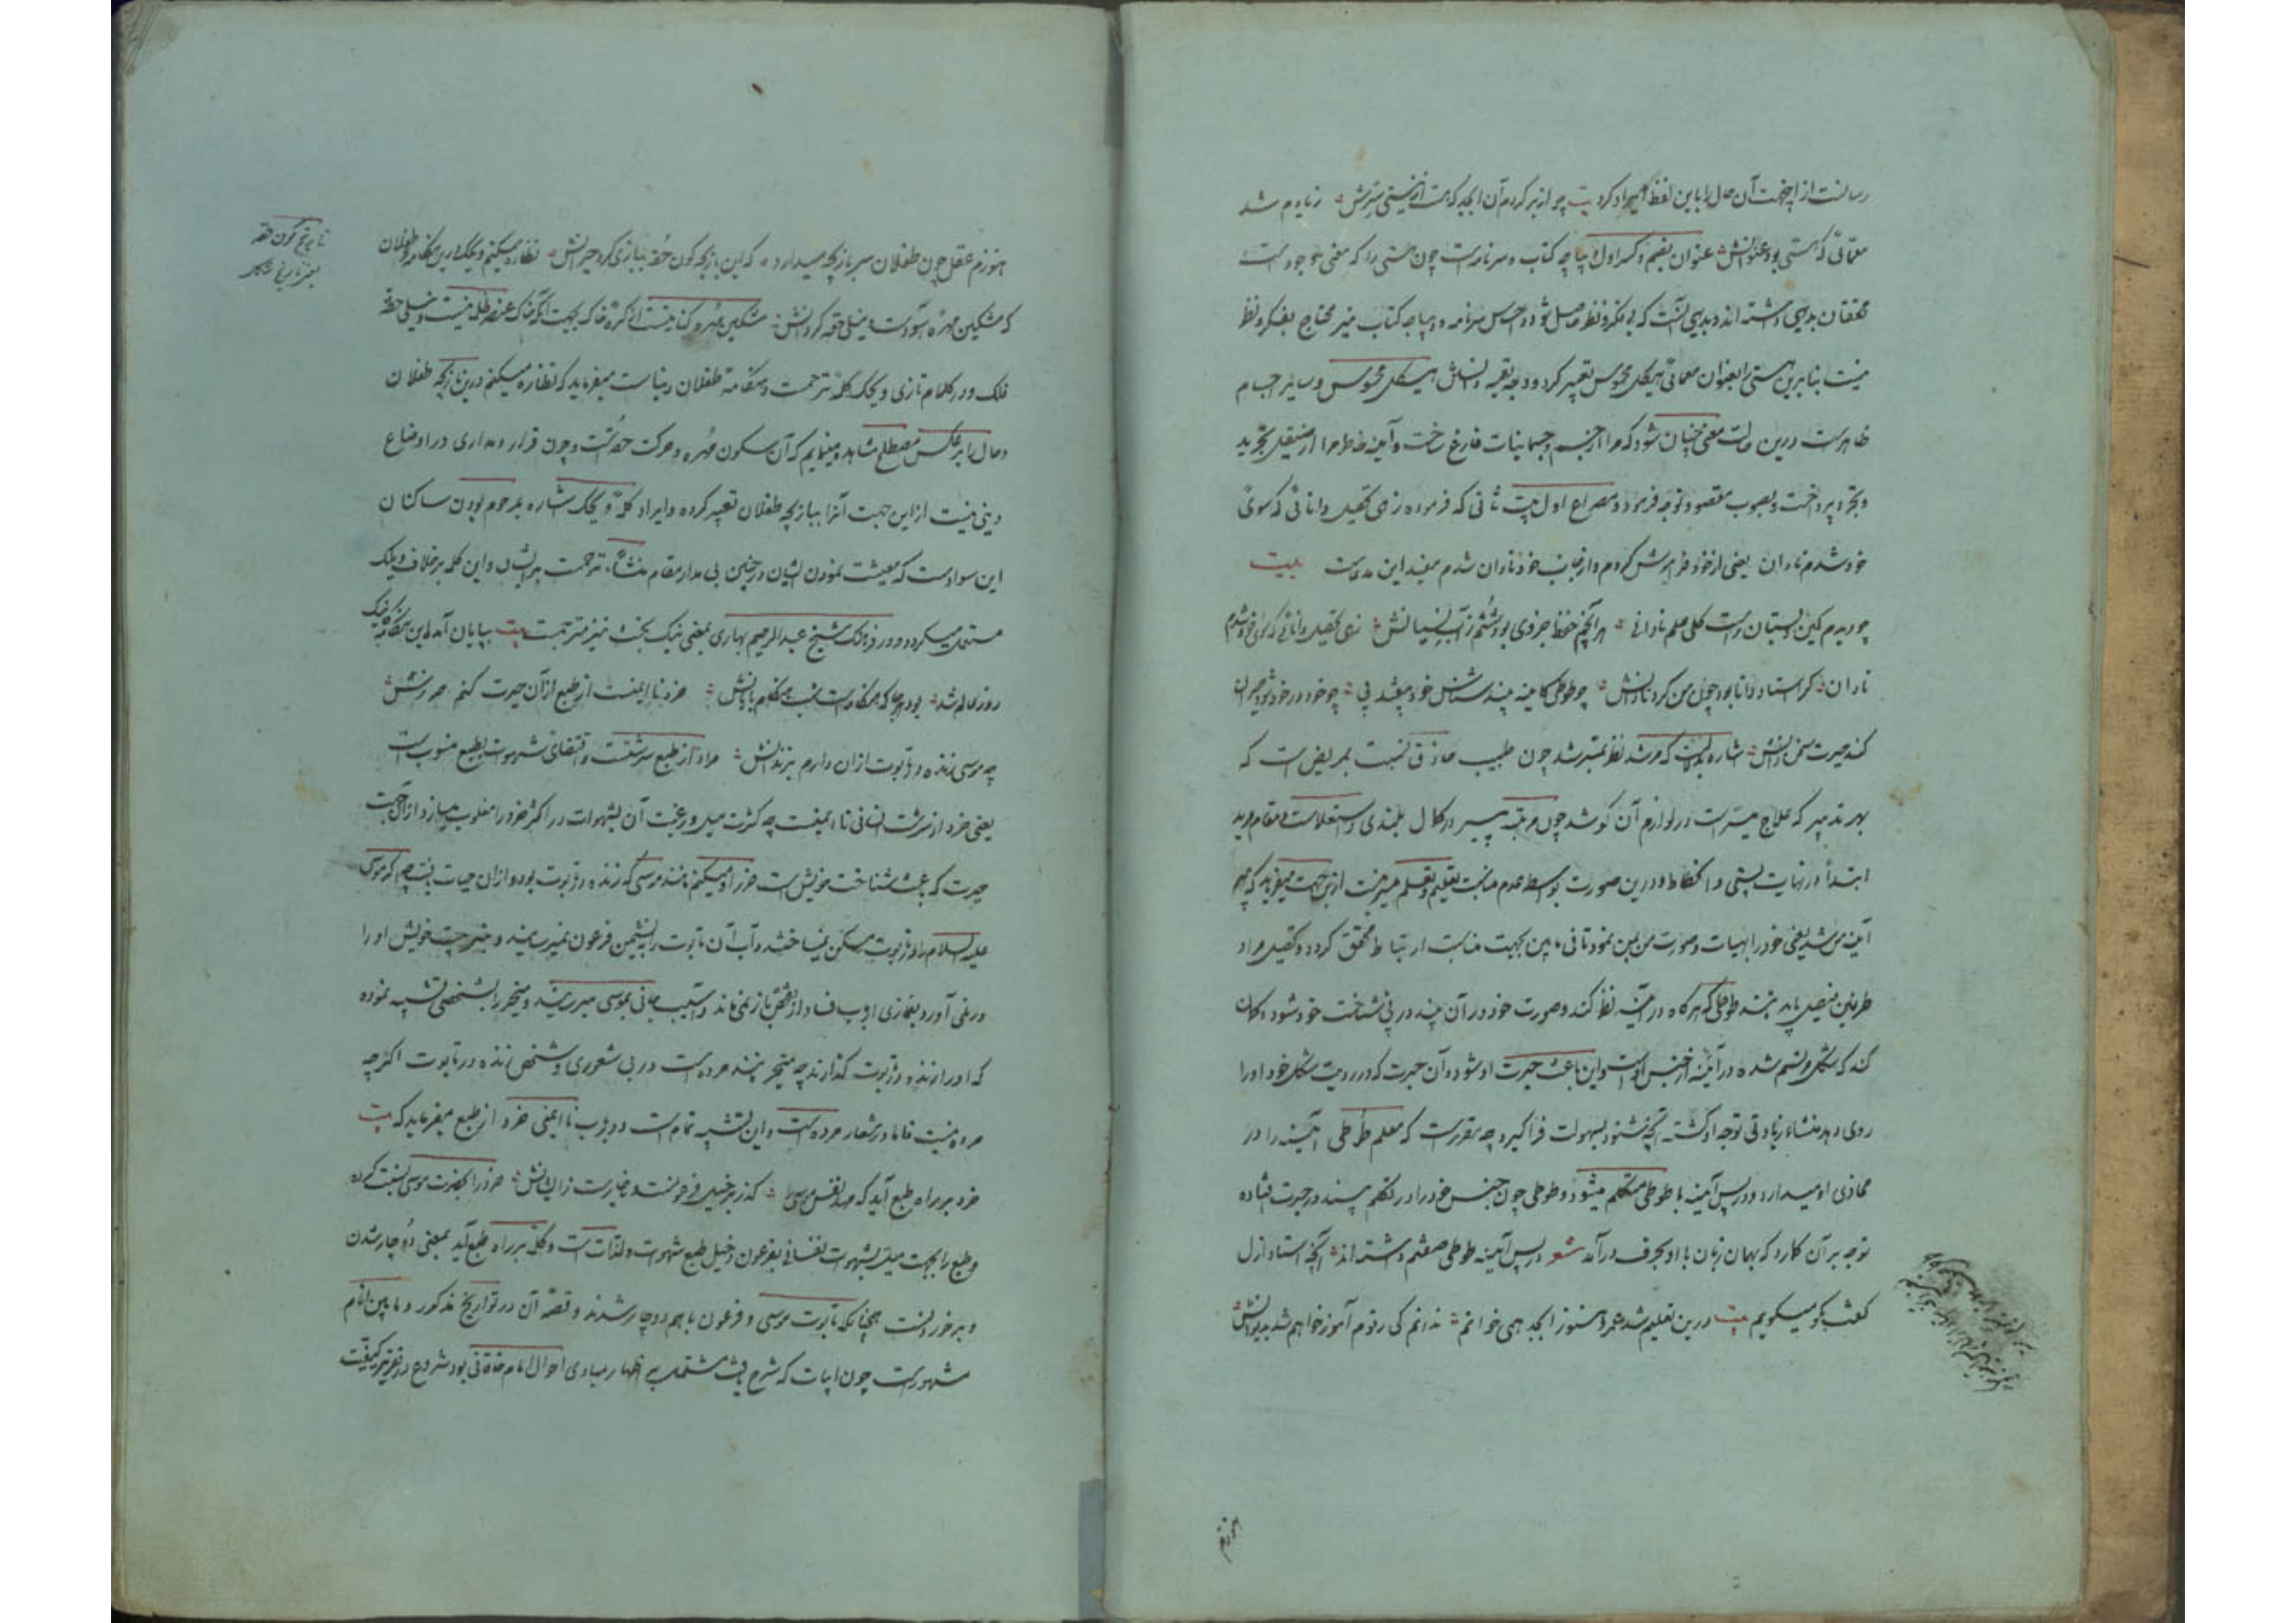 رسالت از اینجهت آن حال را باین لفظ ایراد کرد بیت چو از بر کردم آن ابجد که هست از نیستی سرش زیادم شد
معمائی که هستی بود عنوانش عنوان بضم و کسر اول دیباچه کتاب و سرنامه است چون هستی را که معنی موجود است
محققان بدیهی داشته اند و بدیهی آنست که بی فکر و نظر حاصل شود و احساس سرنامه و دیباچه کتاب نیز محتاج بفکر و نظر
نیست بنابرین هستی را بعنوان معمائی هیکل محسوس تعبیر کرد و وجه تعبیه دانستنش هیکل محسوس و سایر اجسام
ظاهر است درین حالت معنی چنان شود که مرا از جسم و جسمانیات فارغ ساخت و آینه خاطر مرا از صیقل تجرید
و تجرد پرداخت و بصوب مقصود توجه فرمود و مصراع اول بیت ثانی که فرموده زهی تحصیل دانائی که سوی
خود شدم نادان یعنی از خود فراموش کردم و از جانب خود نادان شدم مفید این مدعاست بیت
چو دیدم کین دبستان راست کلی علم نادانی هر آنچم حفظ جزوی بود شستم ز آب نسیانش زهی تحصیل دانائی که سوی خود شدم
نادان که استاد دانا بود چون من کرد نادانش چو طوطی کاینه بیند شناس خود بیفتد پی چو خود در خود شود حیران
کند حیرت سخن دانش اشاره بآنست که مرشد نظر بمسترشد چون طبیب حاذق نسبت بمریض است که
بهر تدبیر که علاج میسر است در لوازم آن کوشد چون مرتبه پیر در کمال بلندی و استعلاست و مقام مرید
ابتدا در نهایت پستی و انحطاط و درین صورت بواسطه عدم مناسبت تعلیم و تعلم میسر نیست ازین جهت میفرماید که پیر
آینه من شد یعنی خود را بهیات و صورت من بمن نمود تا فی مابین بجهت مناسبت ارتباط محقق گردد و تحصیل مراد
طرفین فیصل یابد مانند طوطی که هرگاه در آینه نظر کند و صورت خود در آن بیند در پی شناخت خود شود و گمان
کند که شکل مرتسم شده در آئینه از جنس اوست و این باعث حیرت او شود و آن حیرت که در رویت شکل خود او را
روی دهد منشاء زیادتی توجه او گشته آنچه بشنود بسهولت فراگیرد چه مقرر است که معلم طوطی آئینه را در
محاذی او میدارد و در پس آینه با طوطی متکلم میشود و طوطی چون جنس خود را در تکلم بیند در حیرت افتاده
توجه بر آن گمارد که بهمان زبان با او بحرف درآمد شعر در پس آینه طوطی صفتم داشته اند آنچه استاد ازل
گفت بگو میگویم بیت درین تعلیم شد عمر و هنوز ابجد همی خوانم ندانم کی رقوم آموز خواهم شد بدیوانش
هنوزم
هنوزم عقل چون طفلان سر بازیچه میدارد که این بازیچه گون حقه ببازی کرد حیرانش نظاره میکنم ویحک درین هنگامه طفلان
که مشکین مهره آسوده است و نیلی حقه گردانش مشکین مهره کنایت از کره خاک بجهت آنکه خاک عنصر ظلمانیست و نیلی حقه
فلک و در کلام تازی ویحک کلمه ترحمست و هنگامه طفلان دنیاست میفرماید که نظاره میکنم درین بازیچه طفلان
و حال را بر عکس مصطلح مشاهده مینمایم که آن سکون مهره و حرکت حقه است و چون قرار و مداری در اوضاع
دینی نیست ازین جهت آنرا ببازیچه طفلان تعبیر کرده و ایراد کلمه ویحک اشاره بمرحوم بودن ساکنان
این سوادست که معیشت نمودن ایشان در چنین بی مدار مقام منشاء ترحمست بر ایشان و این کلمه بر خلاف ویلک
مستعمل میگردد و در فرهنگ شیخ عبدالرحیم بهاری بمعنی نیک بخت نیز مترجمست بیت بپایان آمد این هنگامه کاینک
روز عالم شد بود هرجا که هنگامه است شب هنگام پایانش خرد نا ایمنست از طبع از آن حیرت کنم حرزش
چو موسی زنده در تابوت از آن دارم بزندانش مراد از طبع سرشتست و اقتضای شهوت بطبع منسوب است
یعنی خرد از سرشت انسانی نا ایمنست چه کثرت میل و رغبت آن بشهوات در اکثر خرد را مغلوب میسازد از آنجهت
حیرت که باعث شناخت خویش است حرز او میکنم مانند موسی که زنده در تابوت بود و از آن حیات یافت چه اگر موسی
علیه السلام را در تابوت مسکن نمیساختند و آب آن تابوت را بنشیمن فرعون نمیرسانید و
در نمی آورد
که او را زنده در تابوت گذارند چه متحیر مانند مرده است در بی شعوری و شخص زنده در تابوت اگرچه
مرده نیست فاما در شمار مرده است و این تشبیه تمام است و در باب نا ایمنی خرد از طبع میفرماید که بیت
خرد بر راه طبع آید که مهد نفس موسی را گذر بر خیل فرعونست و ناچارست ز ایشانش خرد را بحضرت موسی نسبت کرده
و طبع را بجهت میل بشهوت نفسانی بفرعون و خیل طبع شهوت و لذات است و کلمه بر راه طبع آید بمعنی دوچار شدن
و برخوردنست همچنانکه تابوت موسی و فرعون باهم دوچار شدند و قصه آن در تواریخ مذکور و مابین انام
مشهورست چون ابیات که شرح یافت مشتملست بر اظهار مبادی احوال امام خاقانی بود شروع در تقریر کیفیت